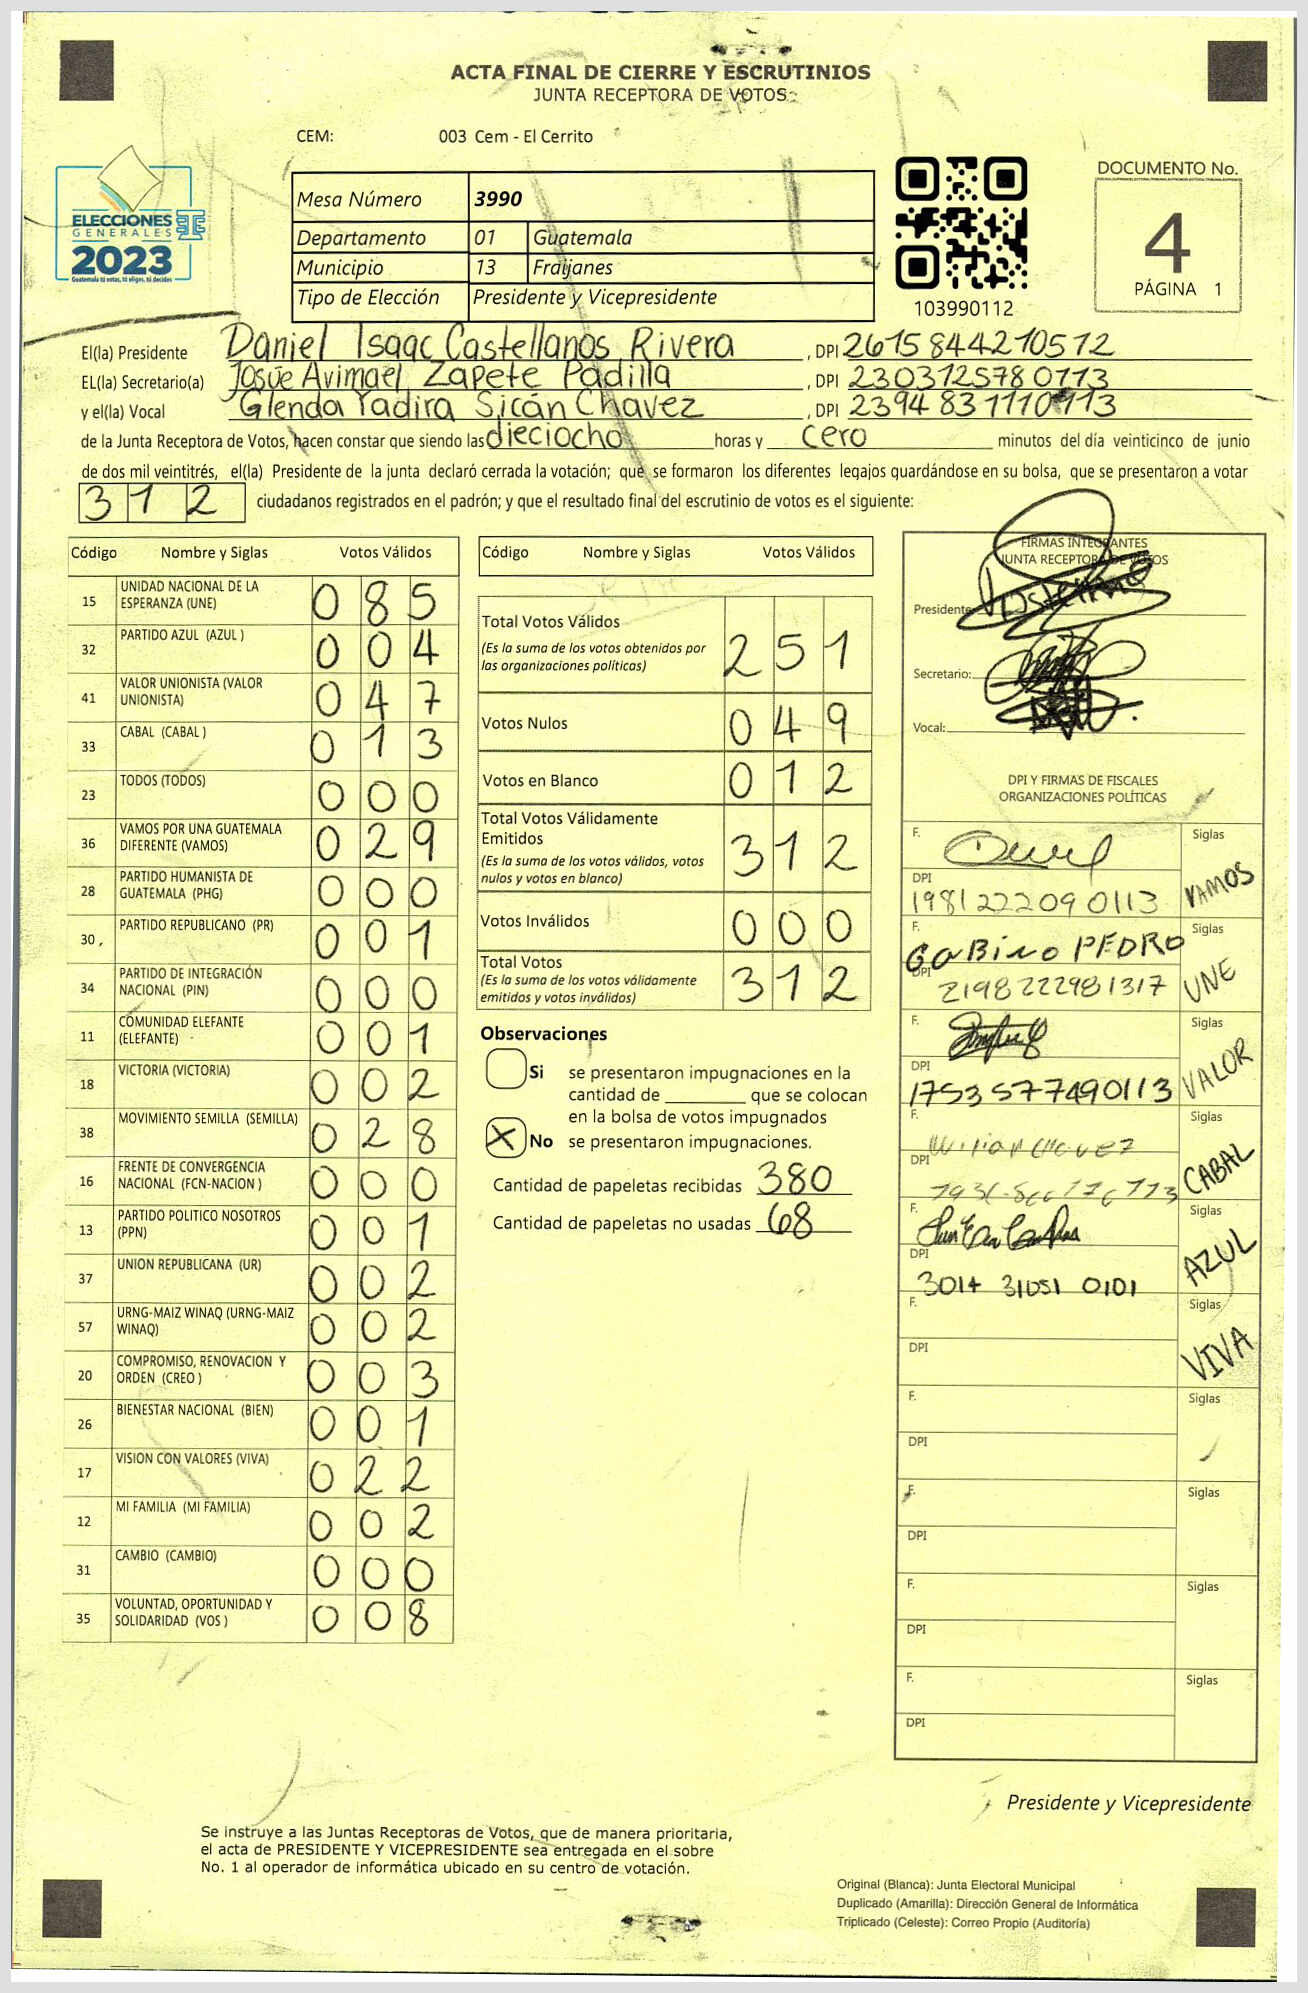 ACTA FINAL DE CIERRE Y ESCRUTINIOS
JUNTA RECEPTORA DE VOTOS
CEM: 003 Cem - El Cerrito
ELECCIONES
GENERALES
2023
Guatemala tú votas, tú eliges, tú decides
Mesa Número 3990
Departamento 01 Guatemala
Municipio 13 Fraijanes
Tipo de Elección Presidente y Vicepresidente
103990112
DOCUMENTO No.
4
PÁGINA 1
El(la) Presidente Daniel Isaac Castellanos Rivera , DPI 2615844210512
EL(la) Secretario(a) Josúe Avimael Zapete Padilla , DPI 2303125780113
y el(la) Vocal Glenda Yadira Sicán Chavez , DPI 2394831110113
de la Junta Receptora de Votos, hacen constar que siendo las dieciocho horas y cero minutos del día veinticinco de junio
de dos mil veintitrés, el(la) Presidente de la junta declaró cerrada la votación; que se formaron los diferentes legajos guardándose en su bolsa, que se presentaron a votar
312 ciudadanos registrados en el padrón; y que el resultado final del escrutinio de votos es el siguiente:
Código Nombre y Siglas Votos Válidos
15 UNIDAD NACIONAL DE LA ESPERANZA (UNE) 085
32 PARTIDO AZUL (AZUL ) 004
41 VALOR UNIONISTA (VALOR UNIONISTA) 047
33 CABAL (CABAL ) 013
23 TODOS (TODOS) 000
36 VAMOS POR UNA GUATEMALA DIFERENTE (VAMOS) 029
28 PARTIDO HUMANISTA DE GUATEMALA (PHG) 000
30 PARTIDO REPUBLICANO (PR) 001
34 PARTIDO DE INTEGRACIÓN NACIONAL (PIN) 000
11 COMUNIDAD ELEFANTE (ELEFANTE) 001
18 VICTORIA (VICTORIA) 002
38 MOVIMIENTO SEMILLA (SEMILLA) 028
16 FRENTE DE CONVERGENCIA NACIONAL (FCN-NACION ) 000
13 PARTIDO POLITICO NOSOTROS (PPN) 001
37 UNION REPUBLICANA (UR) 002
57 URNG-MAIZ WINAQ (URNG-MAIZ WINAQ) 002
20 COMPROMISO, RENOVACION Y ORDEN (CREO ) 003
26 BIENESTAR NACIONAL (BIEN) 001
17 VISION CON VALORES (VIVA) 022
12 MI FAMILIA (MI FAMILIA) 002
31 CAMBIO (CAMBIO) 000
35 VOLUNTAD, OPORTUNIDAD Y SOLIDARIDAD (VOS ) 008
Código Nombre y Siglas Votos Válidos
Total Votos Válidos 251
(Es la suma de los votos obtenidos por
las organizaciones políticas)
Votos Nulos 049
Votos en Blanco 012
Total Votos Válidamente
Emitidos 312
(Es la suma de los votos válidos, votos
nulos y votos en blanco)
Votos Inválidos 000
Total Votos 312
(Es la suma de los votos válidamente
emitidos y votos inválidos)
Observaciones
Si se presentaron impugnaciones en la
cantidad de ________ que se colocan
en la bolsa de votos impugnados
X No se presentaron impugnaciones.
Cantidad de papeletas recibidas 380
Cantidad de papeletas no usadas 68
FIRMAS INTEGRANTES
JUNTA RECEPTORA DE VOTOS
Presidente:
Secretario:
Vocal:
DPI Y FIRMAS DE FISCALES
ORGANIZACIONES POLÍTICAS
F. Siglas
DPI 1981222090113 VAMOS
F. GaBiNo PEDRO Siglas
DPI 2198222981317 UNE
F. Siglas
DPI 1753577490113 VALOR
F. Siglas
DPI CABAL
F. Siglas
DPI 3014 31051 0101 AZUL
F. Siglas
DPI VIVA
F. Siglas
DPI
F. Siglas
DPI
F. Siglas
DPI
F. Siglas
DPI
Presidente y Vicepresidente
Se instruye a las Juntas Receptoras de Votos, que de manera prioritaria,
el acta de PRESIDENTE Y VICEPRESIDENTE sea entregada en el sobre
No. 1 al operador de informática ubicado en su centro de votación.
Original (Blanca): Junta Electoral Municipal
Duplicado (Amarilla): Dirección General de Informática
Triplicado (Celeste): Correo Propio (Auditoría)